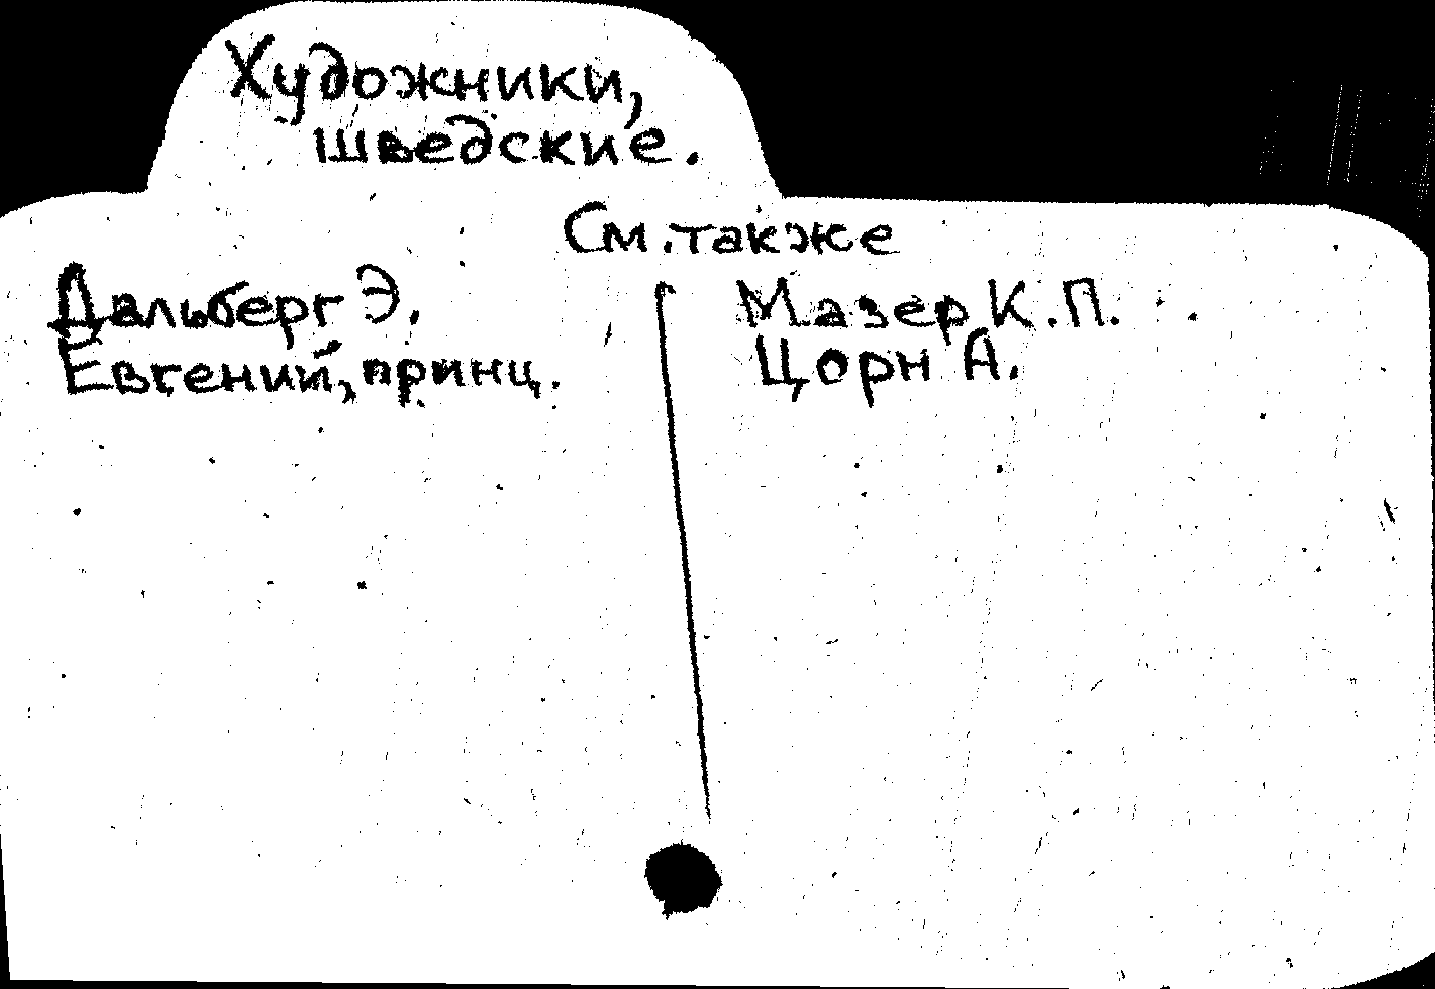 Художники,
шведские.
См. также
Дальберг Э.
Евгений, принц.
Мазер К.П.
Цорн А.